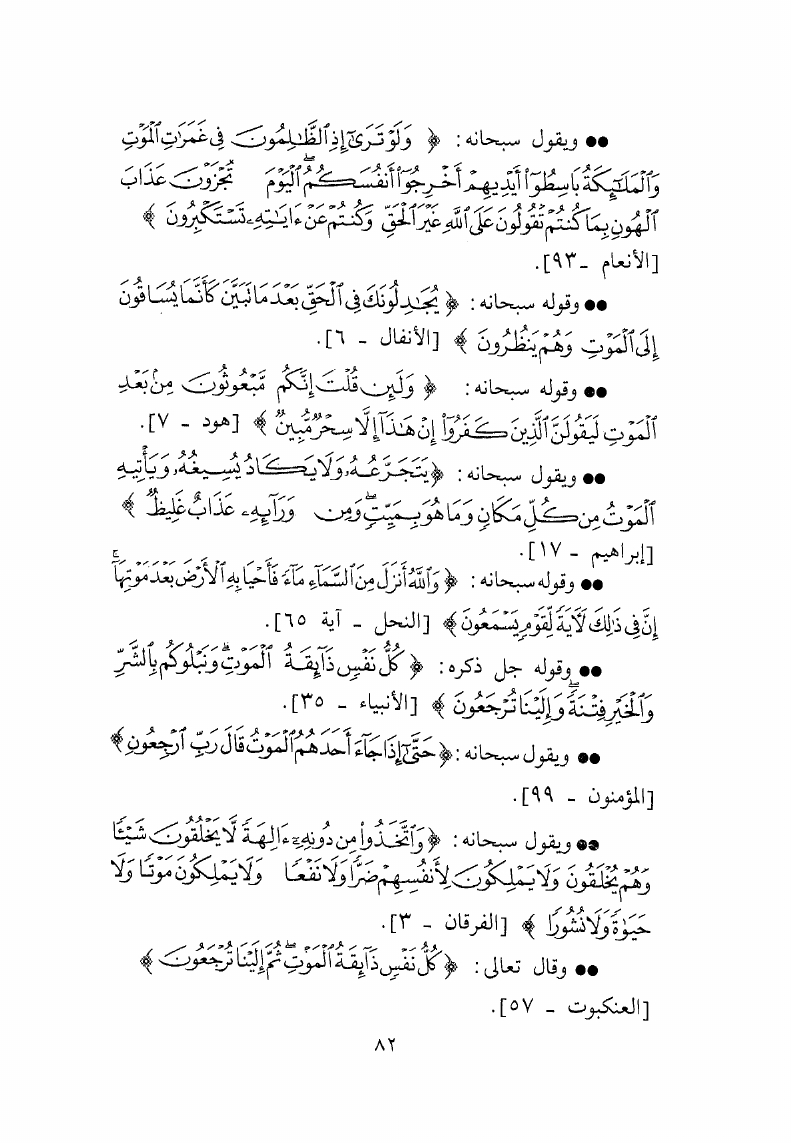 ●● ويقول سبحانه : ﴿ وَلَوْ تَرَىٰٓ إِذِ ٱلظَّٰلِمُونَ فِى غَمَرَٰتِ ٱلْمَوْتِ
وَٱلْمَلَٰٓئِكَةُ بَاسِطُوٓاْ أَيْدِيهِمْ أَخْرِجُوٓاْ أَنفُسَكُمُ ۖ ٱلْيَوْمَ تُجْزَوْنَ عَذَابَ
ٱلْهُونِ بِمَا كُنتُمْ تَقُولُونَ عَلَى ٱللَّهِ غَيْرَ ٱلْحَقِّ وَكُنتُمْ عَنْ ءَايَٰتِهِۦ تَسْتَكْبِرُونَ ﴾
[الأنعام - ٩٣].
●● وقوله سبحانه : ﴿ يُجَٰدِلُونَكَ فِى ٱلْحَقِّ بَعْدَ مَا تَبَيَّنَ كَأَنَّمَا يُسَاقُونَ
إِلَى ٱلْمَوْتِ وَهُمْ يَنظُرُونَ ﴾ [الأنفال - ٦].
●● وقوله سبحانه : ﴿ وَلَئِن قُلْتَ إِنَّكُم مَّبْعُوثُونَ مِنۢ بَعْدِ
ٱلْمَوْتِ لَيَقُولَنَّ ٱلَّذِينَ كَفَرُوٓاْ إِنْ هَٰذَآ إِلَّا سِحْرٌ مُّبِينٌ ﴾ [هود - ٧].
●● ويقول سبحانه : ﴿ يَتَجَرَّعُهُۥ وَلَا يَكَادُ يُسِيغُهُۥ وَيَأْتِيهِ
ٱلْمَوْتُ مِن كُلِّ مَكَانٍ وَمَا هُوَ بِمَيِّتٍ ۖ وَمِن وَرَآئِهِۦ عَذَابٌ غَلِيظٌ ﴾
[إبراهيم - ١٧].
●● وقوله سبحانه : ﴿ وَٱللَّهُ أَنزَلَ مِنَ ٱلسَّمَآءِ مَآءً فَأَحْيَا بِهِ ٱلْأَرْضَ بَعْدَ مَوْتِهَآ ۚ
إِنَّ فِى ذَٰلِكَ لَأٓيَةً لِّقَوْمٍ يَسْمَعُونَ ﴾ [النحل - آية ٦٥].
●● وقوله جل ذكره : ﴿ كُلُّ نَفْسٍ ذَآئِقَةُ ٱلْمَوْتِ ۗ وَنَبْلُوكُم بِٱلشَّرِّ
وَٱلْخَيْرِ فِتْنَةً ۖ وَإِلَيْنَا تُرْجَعُونَ ﴾ [الأنبياء - ٣٥].
●● ويقول سبحانه : ﴿ حَتَّىٰٓ إِذَا جَآءَ أَحَدَهُمُ ٱلْمَوْتُ قَالَ رَبِّ ٱرْجِعُونِ ﴾
[المؤمنون - ٩٩].
●● ويقول سبحانه : ﴿ وَٱتَّخَذُواْ مِن دُونِهِۦٓ ءَالِهَةً لَّا يَخْلُقُونَ شَيْـًٔا
وَهُمْ يُخْلَقُونَ وَلَا يَمْلِكُونَ لِأَنفُسِهِمْ ضَرًّا وَلَا نَفْعًا وَلَا يَمْلِكُونَ مَوْتًا وَلَا
حَيَوٰةً وَلَا نُشُورًا ﴾ [الفرقان - ٣].
●● وقال تعالى : ﴿ كُلُّ نَفْسٍ ذَآئِقَةُ ٱلْمَوْتِ ۖ ثُمَّ إِلَيْنَا تُرْجَعُونَ ﴾
[العنكبوت - ٥٧].
٨٢